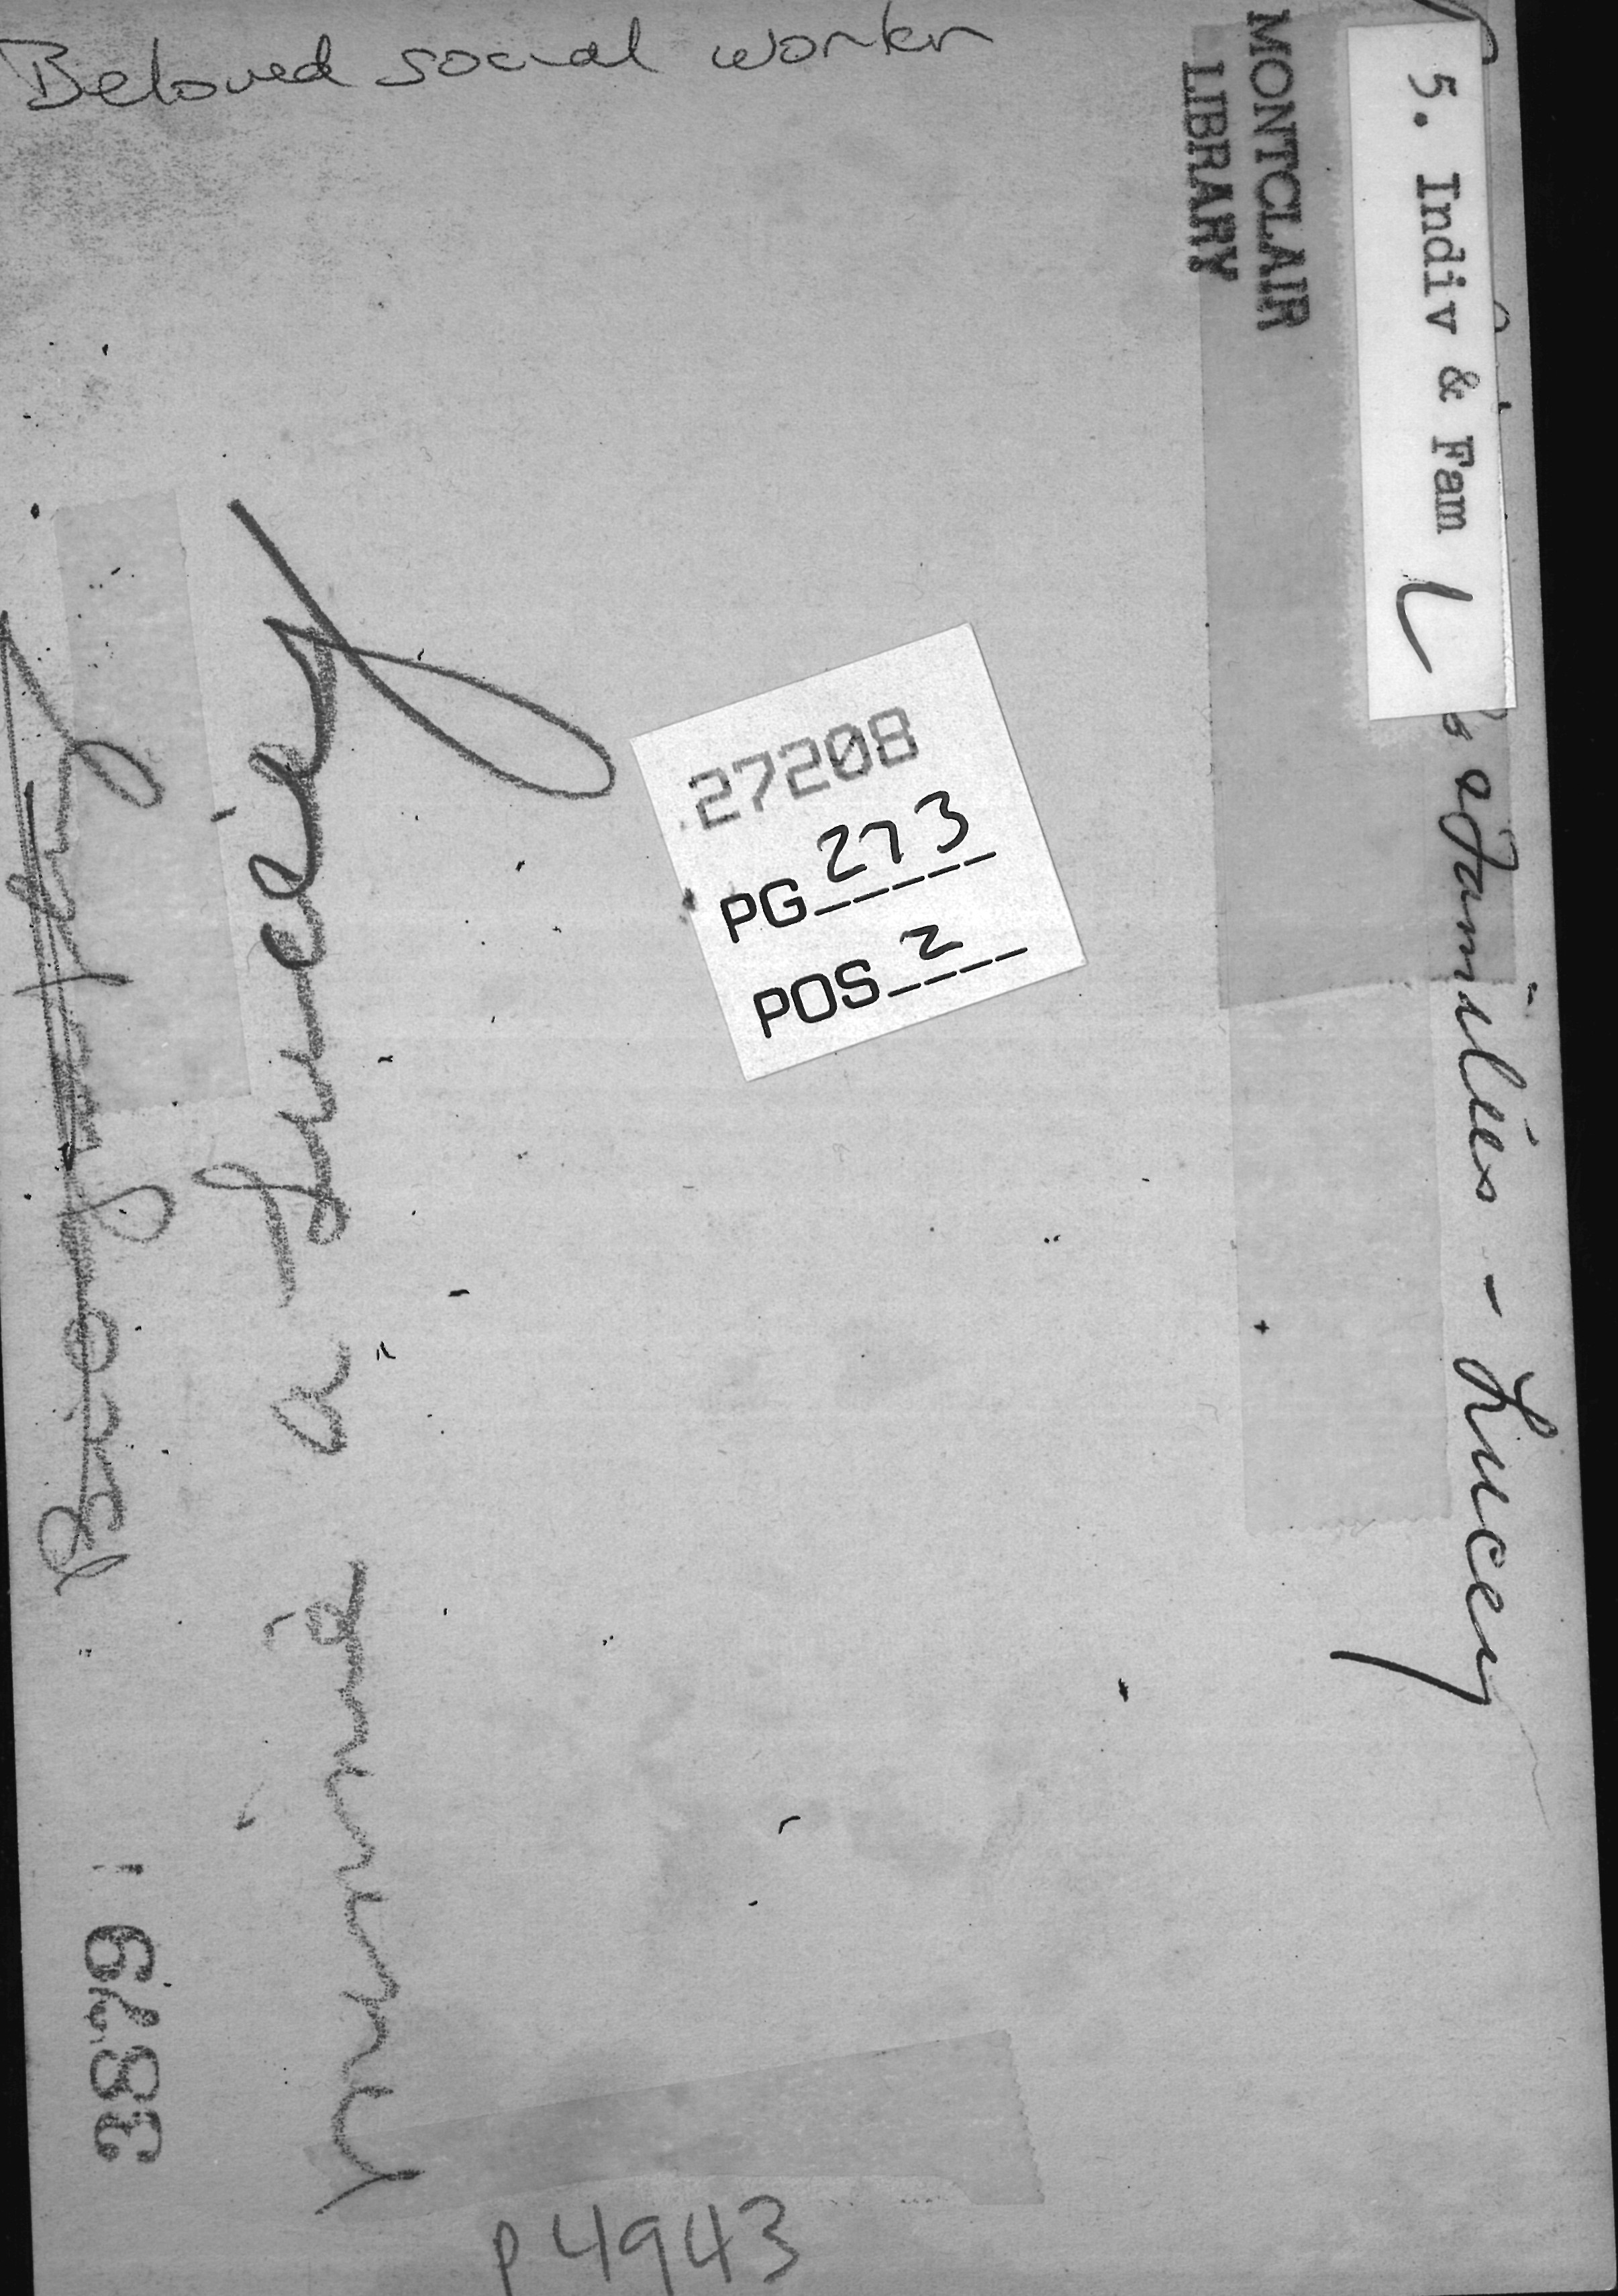 Beloved social worker
MONTCLAIR
LIBRARY
5. Indiv & Fam L
s & Families - Lucey
27208
PG 273
POS 2
Biography
Minnie a Lucey
3879
P4943